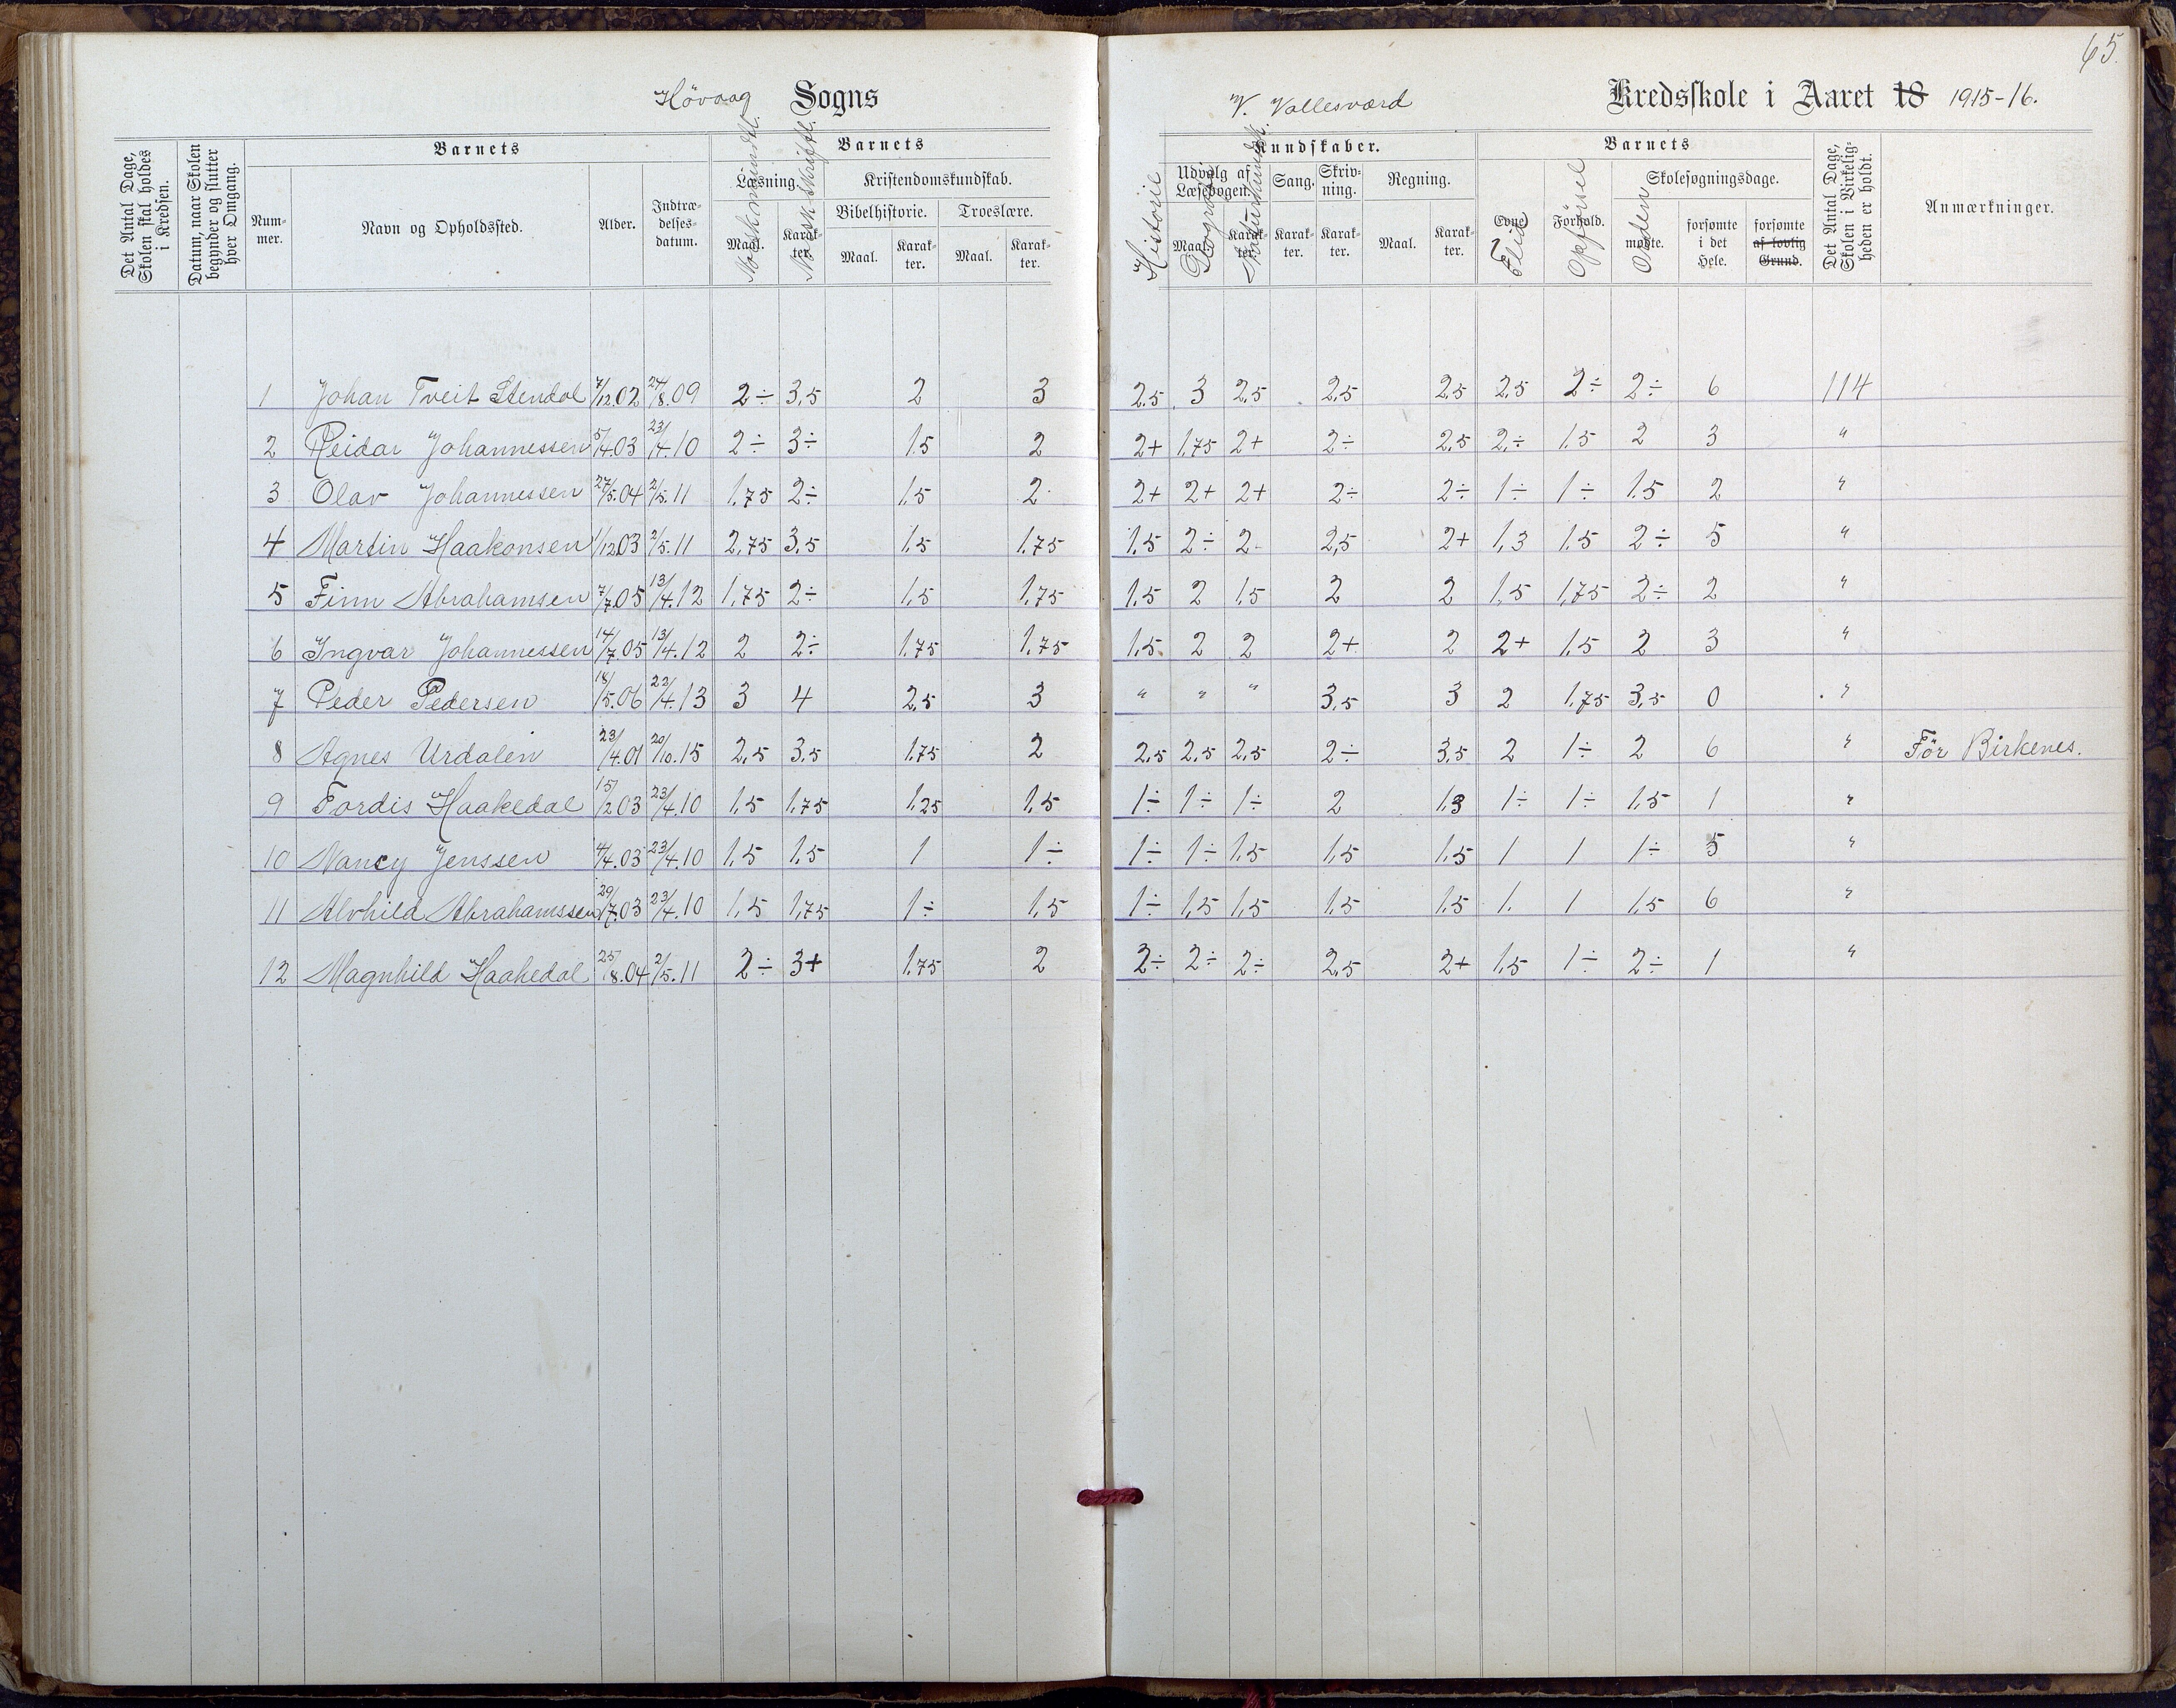 65.
Høvaag Sogns V. Vallesværd Kredsskole i Aaret 18 1915-16.
Det Antal Dage, Skolen skal holdes i Kredsen.
Datum, naar Skolen begynder og slutter hver Omgang.
Barnets Barnets Kundskaber. Barnets
Nummer. Navn og Opholdssted. Alder. Indtrædelsesdatum.
Læsning. Maal. Karakter. Norsk mundtl. Norsk skriftl.
Kristendomskundskab. Bibelhistorie. Maal. Karakter. Troeslære. Maal. Karakter.
Historie Udvalg af Læsebogen. Maal. Karakter. Geografi Naturkundsk.
Sang. Karakter. Skrivning. Karakter. Regning. Maal. Karakter.
Evne. Flid Forhold. Opførsel Orden
Skolesøgningsdage. mødte. forsømte i det Hele. forsømte af lovlig Grund.
Det Antal Dage, Skolen i Virkeligheden er holdt.
Anmærkninger.
1 Johan Tveit Stendal 7/12.02 24/8.09 2÷ 3,5 2 3 2,5 3 2,5 2,5 2,5 2,5 2÷ 2÷ 6 114
2 Reidar Johannessen 5/4.03 23/4.10 2÷ 3÷ 1,5 2 2+ 1,75 2+ 2÷ 2,5 2÷ 1,5 2 3 "
3 Olav Johannessen 27/5.04 2/5.11 1,75 2÷ 1,5 2 2+ 2+ 2+ 2÷ 2÷ 1÷ 1÷ 1,5 2 "
4 Martin Haakonsen 1/12.03 2/5.11 2,75 3,5 1,5 1,75 1,5 2÷ 2 2,5 2+ 1,3 1,5 2÷ 5 "
5 Finn Abrahamsen 7/7.05 13/4.12 1,75 2÷ 1,5 1,75 1,5 2 1,5 2 2 1,5 1,75 2÷ 2 "
6 Ingvar Johannessen 14/7.05 13/4.12 2 2÷ 1,75 1,75 1,5 2 2 2+ 2 2+ 1,5 2 3 "
7 Peder Pedersen 18/5.06 22/4.13 3 4 2,5 3 " " " 3,5 3 2 1,75 3,5 0 "
8 Agnes Urdalen 23/4.01 20/10.15 2,5 3,5 1,75 2 2,5 2,5 2,5 2÷ 3,5 2 1÷ 2 6 " Før Birkenes.
9 Tordis Haakedal 15/12.03 23/4.10 1,5 1,75 1,25 1,5 1÷ 1÷ 1÷ 2 1,3 1÷ 1÷ 1,5 1 "
10 Nancy Jenssen 4/4.03 23/4.10 1,5 1,5 1 1÷ 1÷ 1÷ 1,5 1,5 1,5 1 1 1÷ 5 "
11 Alvhild Abrahamssen 29/7.03 23/4.10 1,5 1,75 1÷ 1,5 1÷ 1,5 1,5 1,5 1,5 1. 1 1,5 6 "
12 Magnhild Haakedal 25/8.04 2/5.11 2÷ 3+ 1,75 2 2÷ 2÷ 2÷ 2,5 2+ 1,5 1÷ 2÷ 1 "